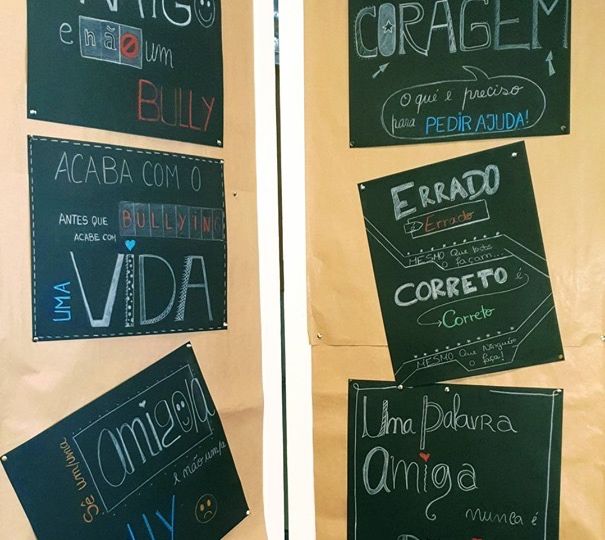 AMIGO
e não um
BULLY
ACABA COM O
BULLYING
ANTES QUE
ACABE COM
UMA
VIDA
Sê um/uma
amigo/a
e não um/a
CORAGEM
O que é preciso
para PEDIR AJUDA!
ERRADO
é Errado
MESMO Que todos
o façam...
CORRETO é
Correto
MESMO Que Ninguém
o faça!
Uma Palavra
Amiga
nunca é